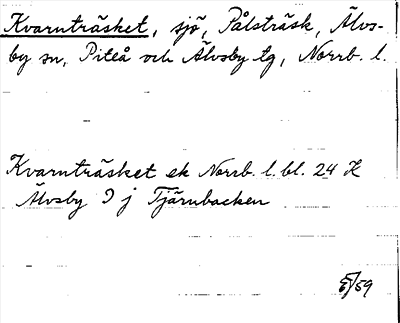 Kvarnträsket, sjö, Pålsträsk, Älvs-
by sn, Piteå och Älvsby tg, Norrb. l.
Kvarnträsket ek Norrb. l. bl. 24 K
Älvsby 9 j Tjärnbacken
/59